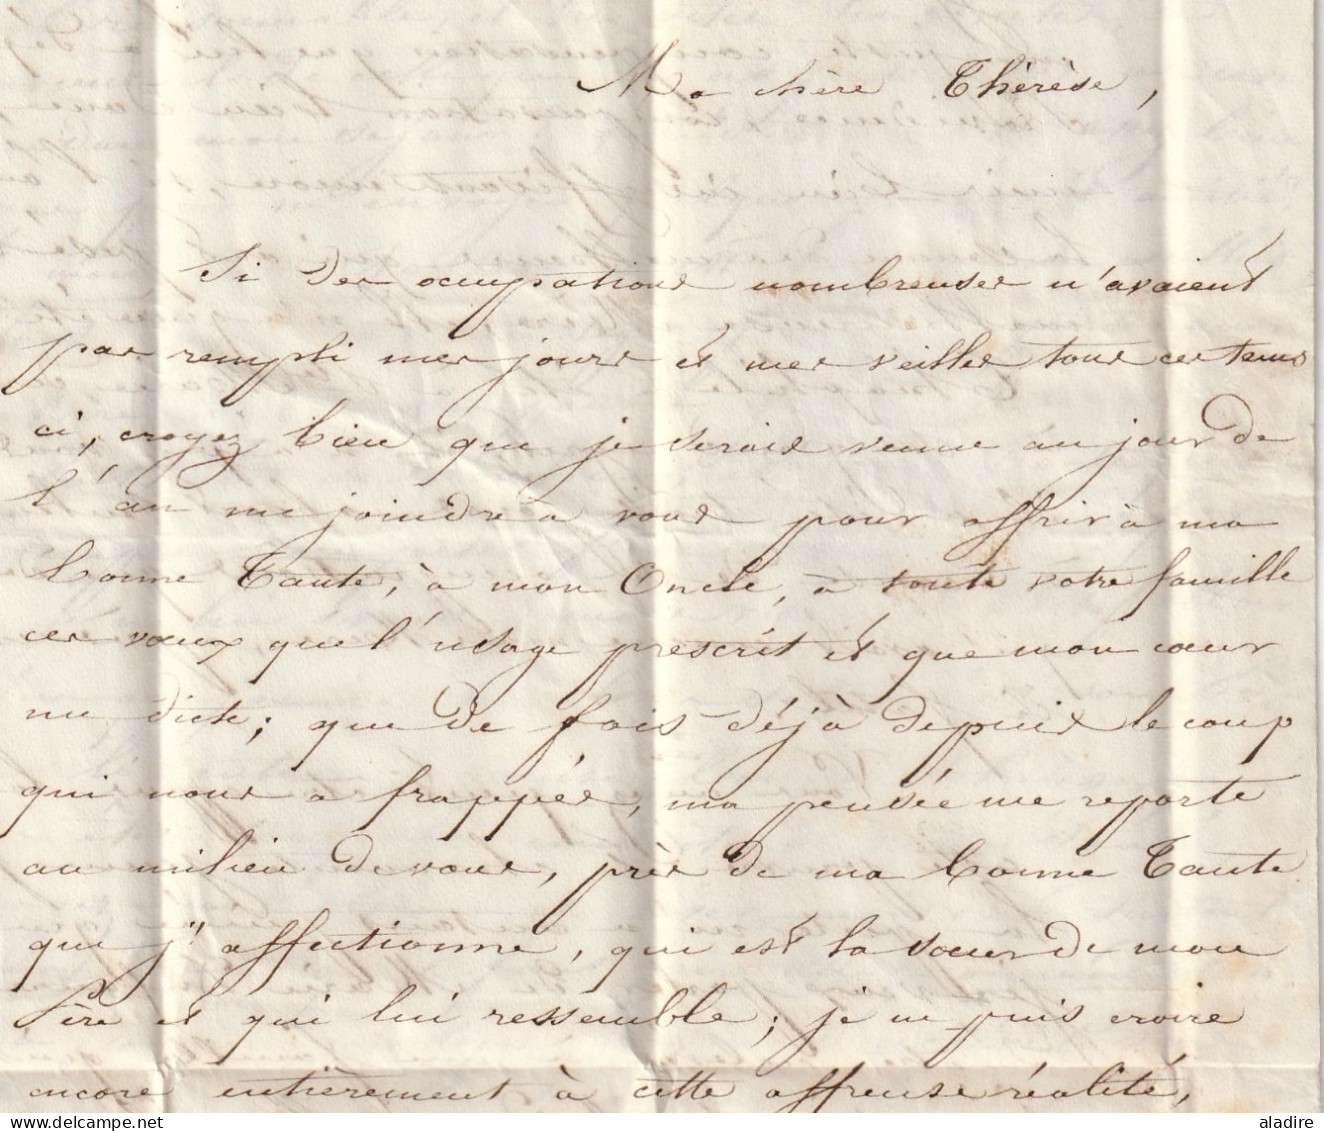 Ma chère Thérèse,
Si des occupations nombreuses n'avaient
pas rempli mes jours et mes veilles tous ces tems
ci, croyez bien que je serais venue au jour de
l'an me joindre à vous pour offrir à ma
bonne Tante, à mon Oncle, à toute votre famille
ces vœux que l'usage prescrit et que mon cœur
me dicte; que de fois déjà depuis le coup
qui nous a frappées, ma pensée me reporte
au milieu de vous, près de ma bonne Tante
que j'affectionne, qui est la sœur de mon
Père et qui lui ressemble; je ne puis croire
encore entièrement à cette affreuse réalité,
aladire